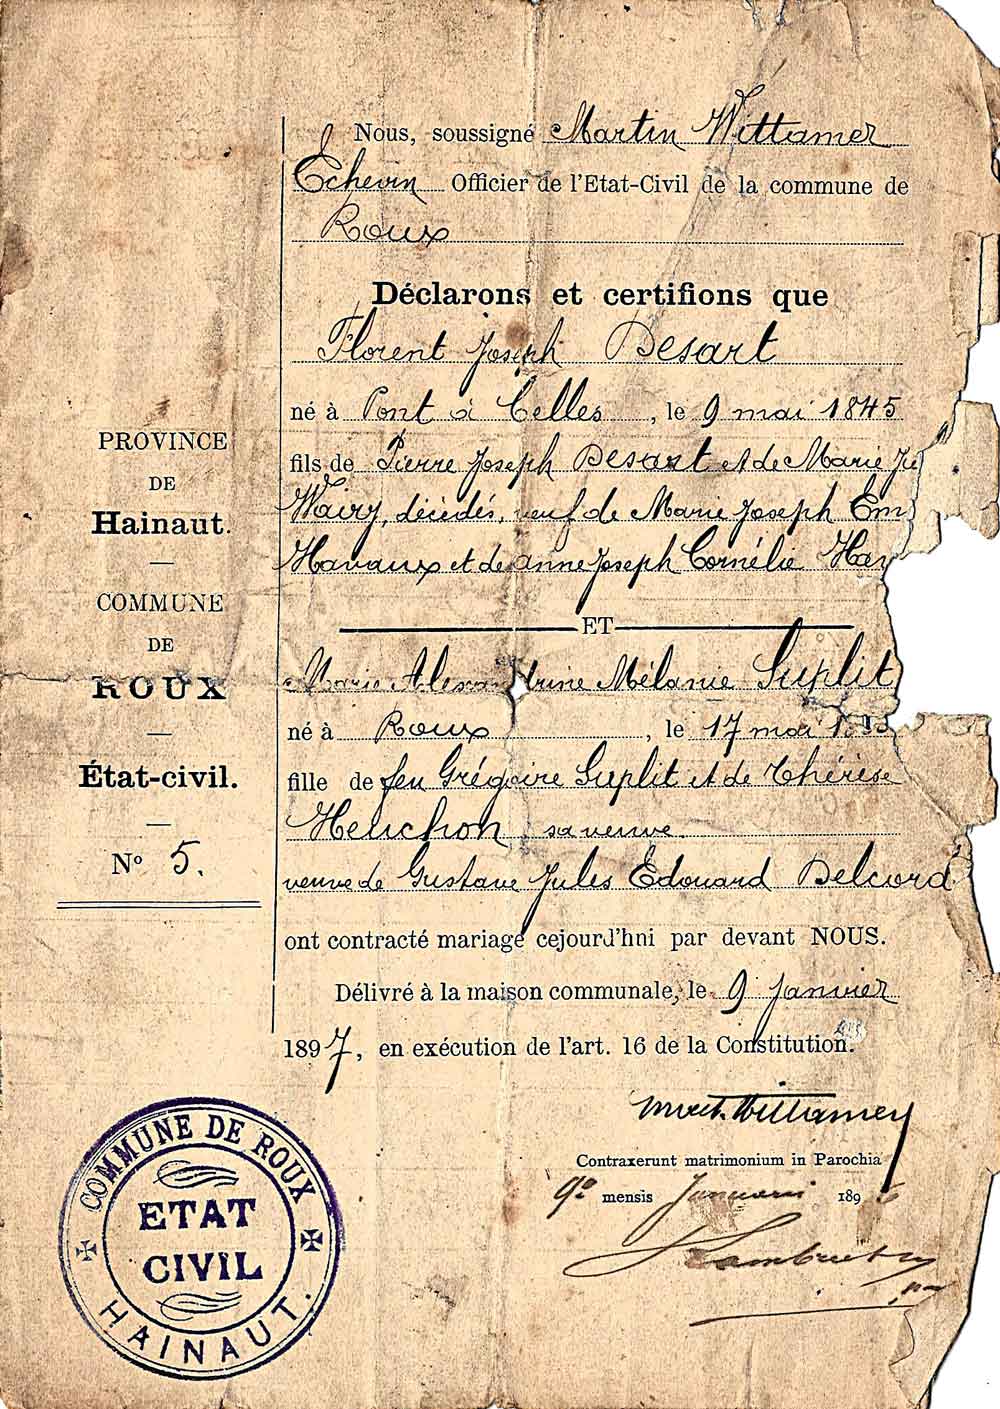 Nous, soussigné Martin Wittamer
Echevin Officier de l'Etat-Civil de la commune de
Roux
Déclarons et certifions que
Florent Joseph Desart
né à Pont à Celles, le 9 mai 1845
fils de Pierre Joseph Desart et de Marie
Wairy, décédés, veuf de Marie Joseph Em
Havaux et de Anne Joseph Cornélie Hav
ET
Marie Alexandrine Mélanie Suplit
né à Roux, le 17 mai
fille de feu Grégoire Suplit et de Thérèse
Heuchon sa veuve
veuve de Gustave Jules Edouard Delcord
ont contracté mariage cejourd'hui par devant NOUS.
Délivré à la maison communale, le 9 Janvier
1897, en exécution de l'art. 16 de la Constitution.
PROVINCE
DE
Hainaut.
COMMUNE
DE
ROUX
État-civil.
N° 5.
Mart. Wittamer
Contraxerunt matrimonium in Parochia
9° mensis Januarii 189
COMMUNE DE ROUX
ETAT
CIVIL
HAINAUT.